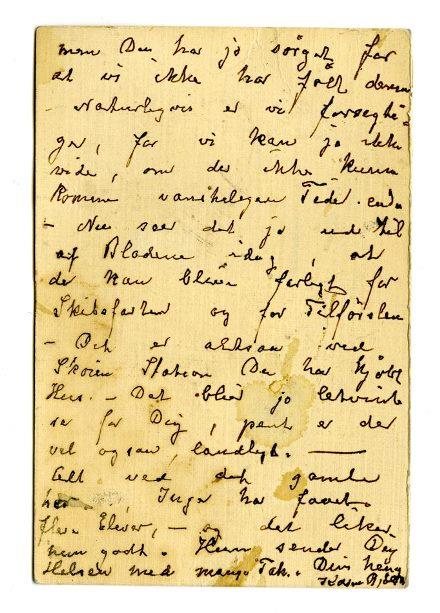 men Du har jo sørget for
at vi ikke har følt denne
- Naturligvis er vi forsegti-
ge, for vi kan jo ikke
vide, om der ikke kunn
komme vanskeligere Tider. enda
- Nu seer det jo ud til
af Bladene idag, at
de kan blive farligt for
Skibsfarten og for Tilførslen
- Det er altsaa ved
Skøien Station Du har kjøbt
Hus. - Det blir jo letvint
se for Dig, pent er der
vel ogsaa, landligt.
Alt ved det gamle
her. Inga har faaet
flere Elever, - og det liker
hun godt. Hun sender Dig
Hilsen med mange Tak. Din heng